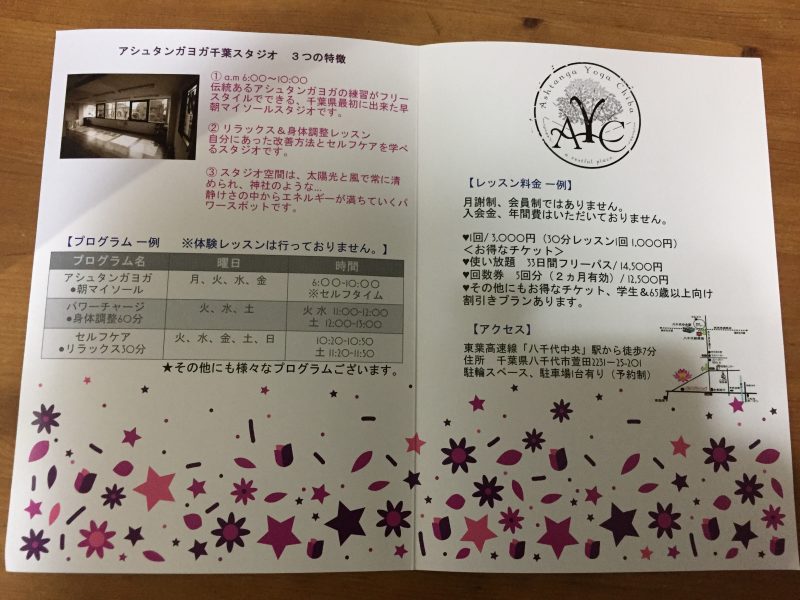 アシュタンガヨガ千葉スタジオ　３つの特徴
① a.m 6:00～10:00
伝統あるアシュタンガヨガの練習がフリー
スタイルでできる、千葉県最初に出来た早
朝マイソールスタジオです。
② リラックス＆身体調整レッスン
自分にあった改善方法とセルフケアを学べ
るスタジオです。
③ スタジオ空間は、太陽光と風で常に清
められ、神社のような...
静けさの中からエネルギーが満ちていくパ
ワースポットです。
【プログラム 一例　※体験レッスンは行っておりません。】
プログラム名 曜日 時間
アシュタンガヨガ
●朝マイソール
月、火、水、金
6:00-10:00
※セルフタイム
パワーチャージ
●身体調整60分
火、水、土
火 水 11:00-12:00
土 12:00-13:00
セルフケア
●リラックス30分
火、水、金、土、日
10:20-10:50
土 11:20-11:50
★その他にも様々なプログラムございます。
Ashtanga Yoga Chiba
AYC
a restful place
【レッスン料金 一例】
月謝制、会員制ではありません。
入会金、年間費はいただいておりません。
♥1回/ 3,000円（30分レッスン1回 1,000円）
＜お得なチケット＞
♥使い放題　33日間フリーパス/ 14,500円
♥回数券　5回分（２ヵ月有効）/ 12,500円
♥その他にもお得なチケット、学生＆65歳以上向け
割引きプランあります。
【アクセス】
東葉高速線「八千代中央」駅から徒歩7分
住所　千葉県八千代市萱田2231-25-201
駐輪スペース、駐車場1台有り（予約制）